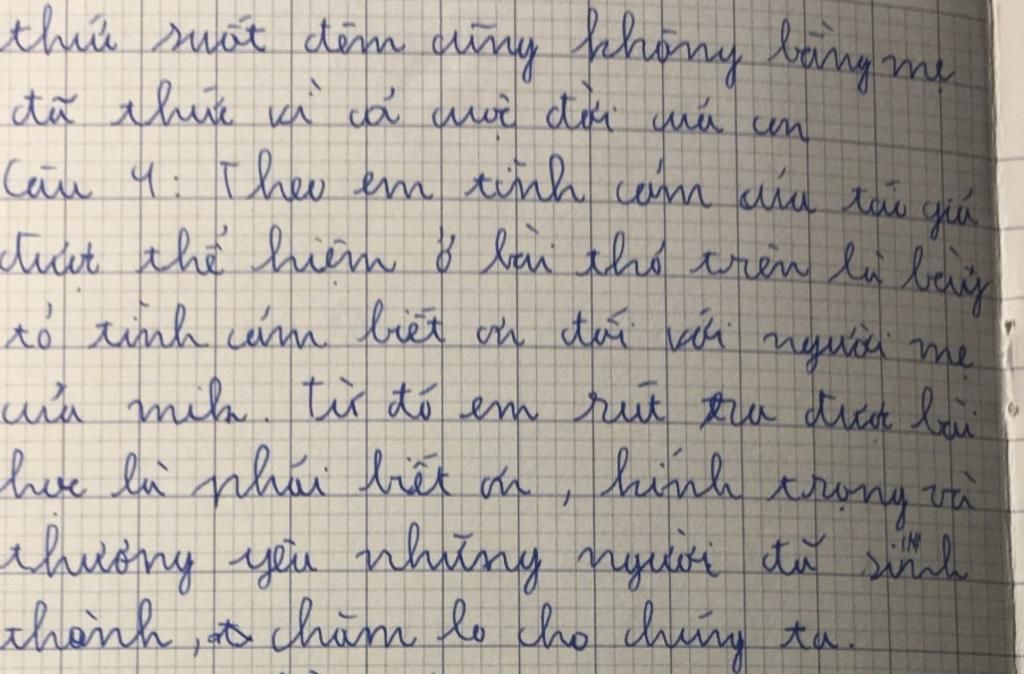 thứ suốt đêm cũng không bằng mẹ
đã thức vì cả cuộc đời của con
Câu 4: Theo em tình cảm của tác giả
được thể hiện ở bài thơ trên là bày
tỏ tình cảm biết ơn đối với người mẹ
của mih. Từ đó em rút ra được bài
học là phải biết ơn, kính trọng và
thương yêu những người đã sinh
thành, chăm lo cho chúng ta.